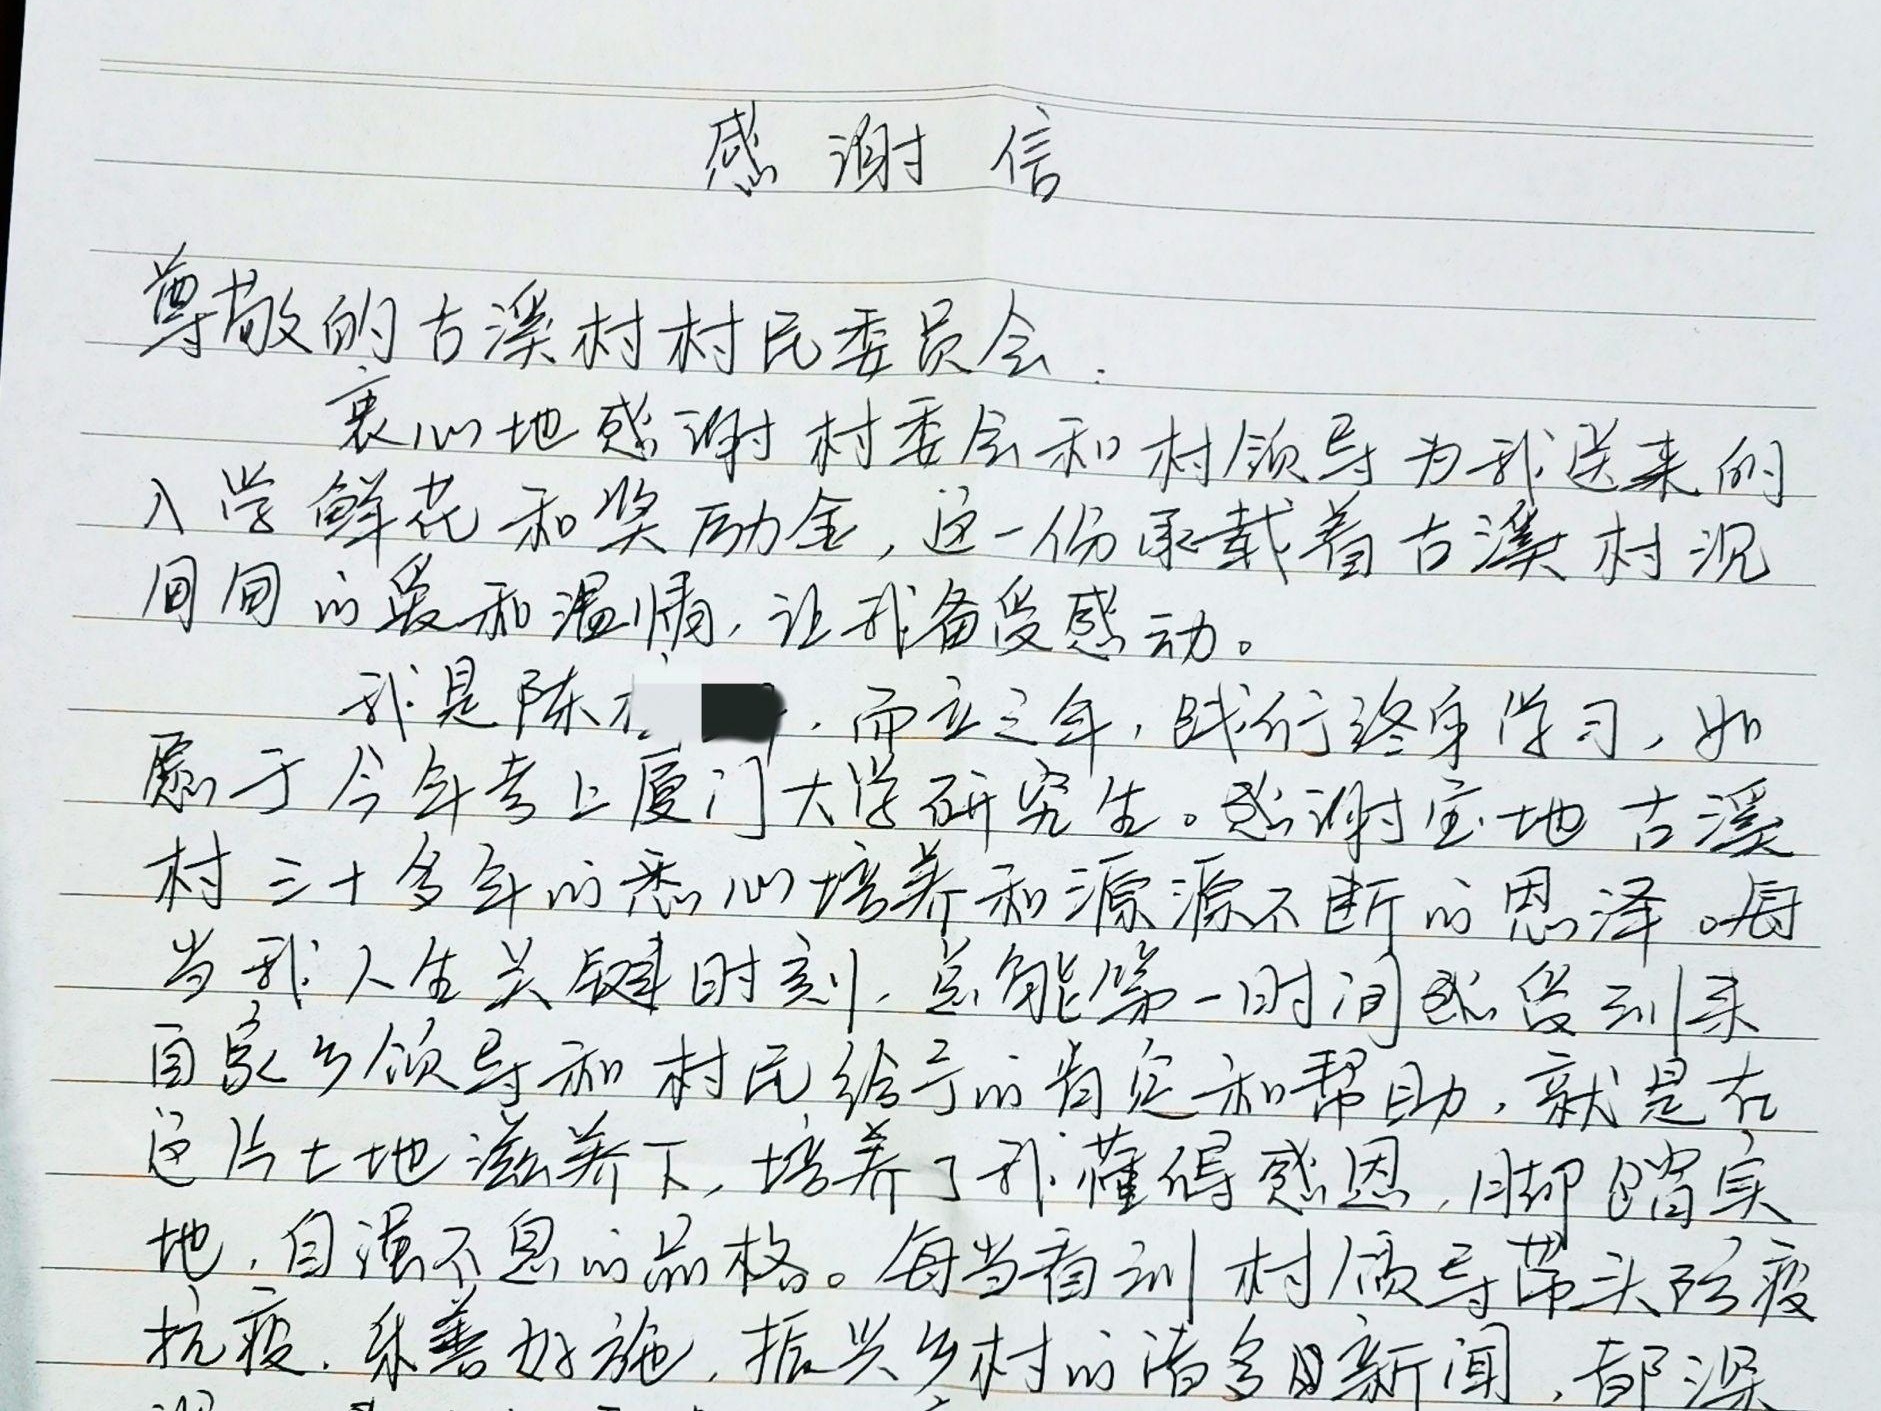 感谢信
尊敬的古溪村村民委员会:
衷心地感谢村委会和村领导为我送来的
入学鲜花和奖励金,这一份承载着古溪村沉
甸甸的爱和温情,让我备受感动。
我是陈 ,而立之年,践行终身学习,如
愿于今年考上厦门大学研究生。感谢宝地古溪
村三十多年的悉心培养和源源不断的恩泽。每
当我人生关键时刻,总能第一时间感受到来
自家乡领导和村民给予的肯定和帮助,就是在
这片土地滋养下,培养了我懂得感恩,脚踏实
地,自强不息的品格。每当看到村领导带头防疫
抗疫,乐善好施,振兴乡村的诸多新闻,都深